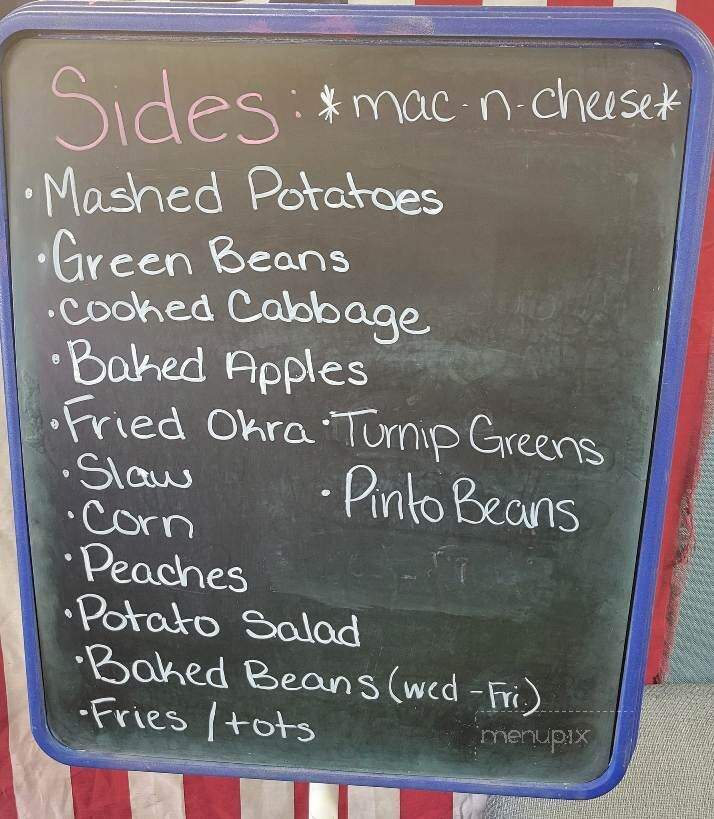 Sides: *mac-n-cheese*
• Mashed Potatoes
• Green Beans
• cooked Cabbage
• Baked Apples
• Fried Okra • Turnip Greens
• Slaw
• Pinto Beans
• Corn
• Peaches
• Potato Salad
• Baked Beans (wed - Fri.)
• Fries / tots
menupix